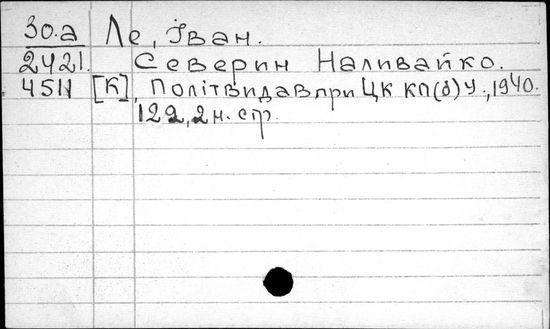 30.а Ле, Іван.
2421. Северин Наливайко.
4511 [К], Політвидав при ЦК КП(б)У., 1940.
122, 2 н. стр.